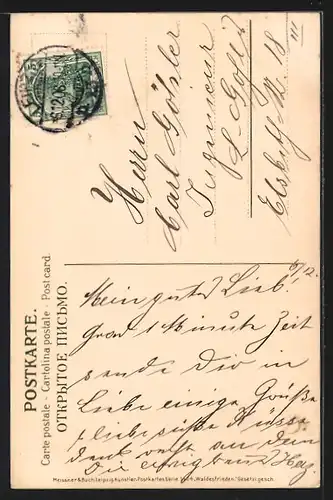 POSTKARTE.
Carte postale - Cartolina postale - Post card.
ОТКРЫТОЕ ПИСЬМО.
Herrn
Carl Göhler
Ingenieur
L-Gohlis
18 III
8/12.
Mein gutes Lieb!
Grad 1 Minute Zeit
sende Dir in
Liebe einige Grüße
u liebe süße Küsse
denk oft an dein
Dir ewig treues Herz
Meissner & Buch, Leipzig Künstler-Postkarten Serie „Waldesfrieden.“ Gesetzl. gesch.